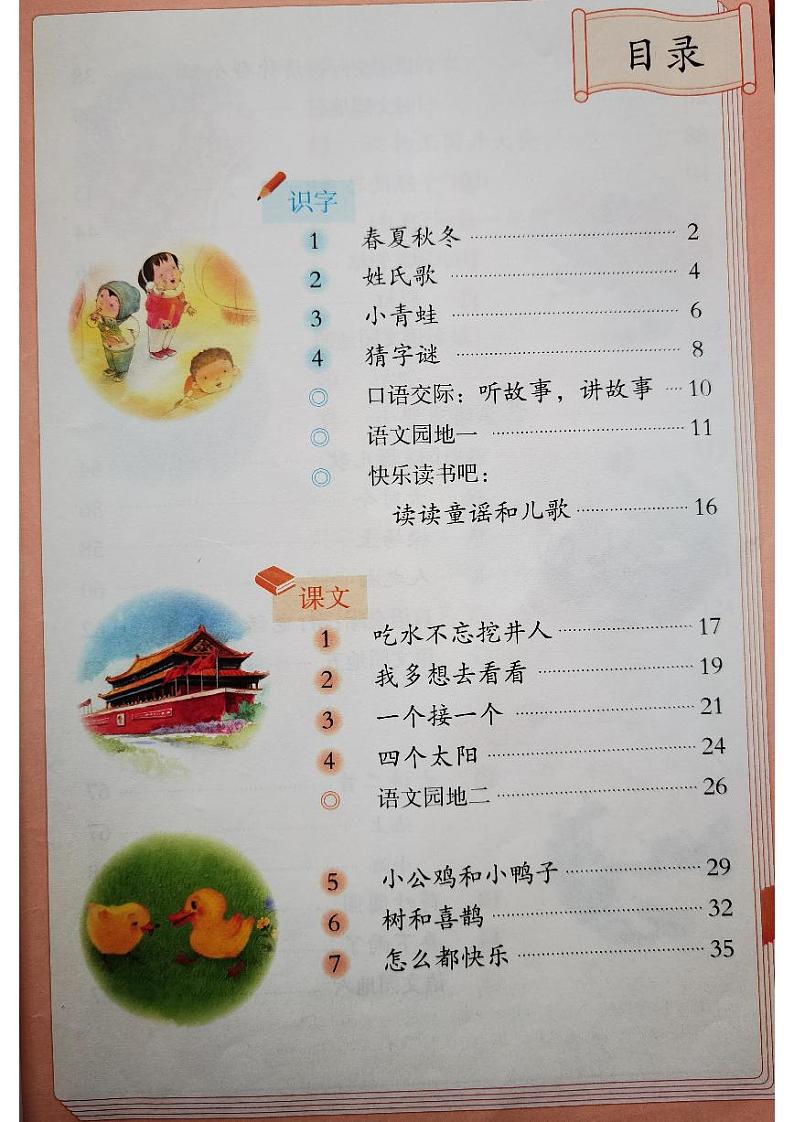 目录
识字
1 春夏秋冬 2
2 姓氏歌 4
3 小青蛙 6
4 猜字谜 8
◎ 口语交际：听故事，讲故事 10
◎ 语文园地一 11
◎ 快乐读书吧：
读读童谣和儿歌 16
课文
1 吃水不忘挖井人 17
2 我多想去看看 19
3 一个接一个 21
4 四个太阳 24
◎ 语文园地二 26
5 小公鸡和小鸭子 29
6 树和喜鹊 32
7 怎么都快乐 35